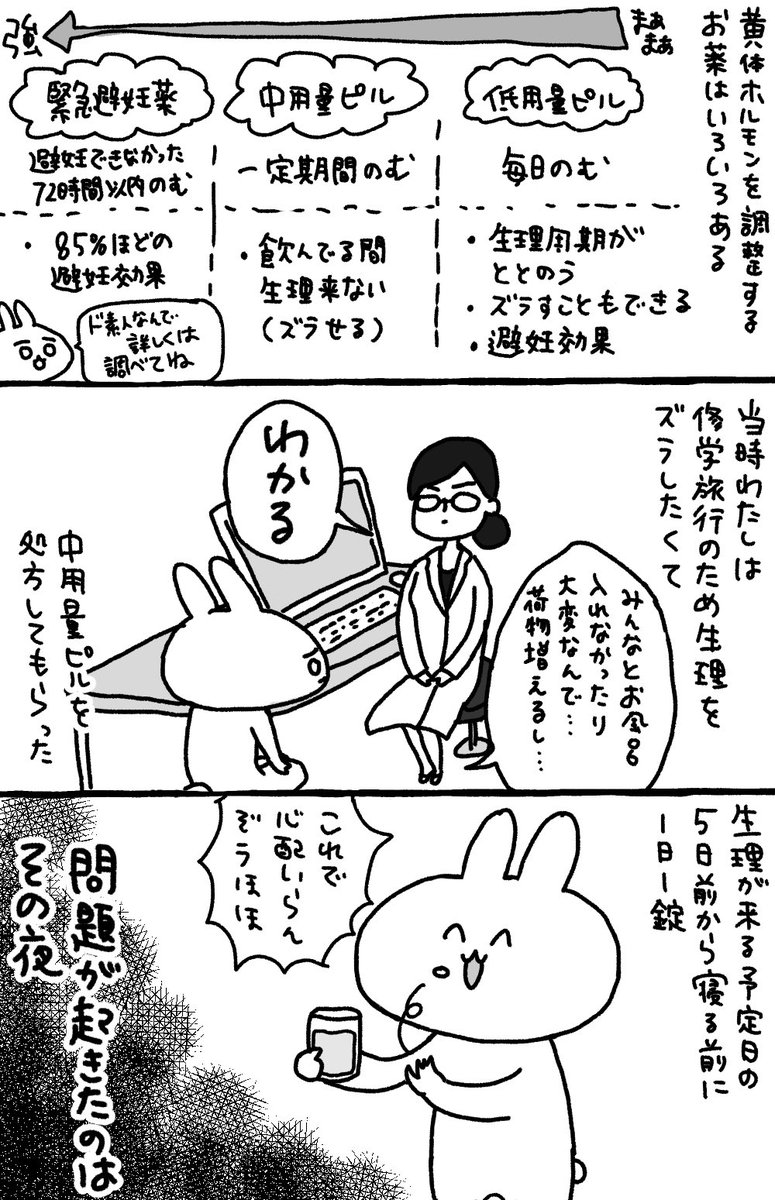 黄体ホルモンを調整する
お薬はいろいろある
まぁ
まぁ
強
低用量ピル
毎日のむ
・生理周期が
ととのう
・ズラすこともできる
・避妊効果
中用量ピル
一定期間のむ
・飲んでる間
生理来ない
(ズラせる)
緊急避妊薬
避妊できなかった
72時間以内のむ
・85%ほどの
避妊効果
ド素人なんで
詳しくは
調べてね
当時わたしは
修学旅行のため生理を
ズラしたくて
みんなとお風呂
入れなかったり
大変なんで…
荷物増えるし…
わかる
中用量ピルを
処方してもらった
生理が来る予定日の
5日前から寝る前に
1日1錠
これで
心配いらん
ぞうほほ
問題が起きたのは
その夜